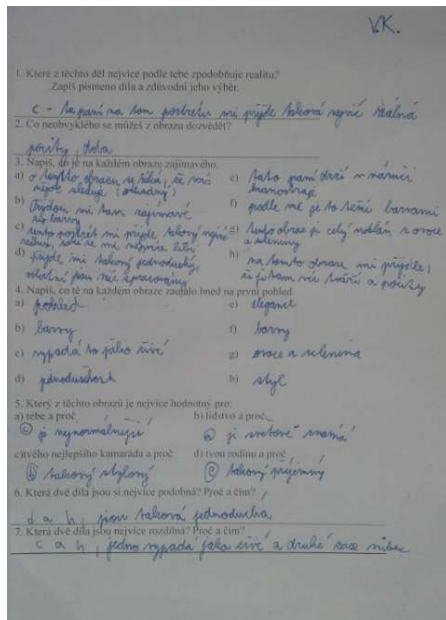 V.K.
1. Které z těchto děl nejvíce podle tebe zpodobňuje realitu?
Zapiš písmeno díla a zdůvodni jeho výběr.
c - ta paní na tom portrétu mi přijde taková nejvíc reálná
2. Co neobvyklého se můžeš z obrazu dozvědět?
pocity, doba
3. Napiš, co je na každém obraze zajímavého.
a) o tomto obrazu se říká, že vás
nějak sleduje (odevšad)
b) mi tam zajímavé
barvy
c) tento portrét mi přijde takový nejvíc
reálný, také se mi nejvíce líbí
d) přijde mi takový jednoduchý,
není zpracovaný
e) tato paní drží v náručí
f) podle mě je to těmi barvami
g) tento obraz je celý udělán z ovoce
a zeleniny
h) na tomto obraze mi přijde,
že je tam víc tváří a pocity
4. Napiš, co tě na každém obraze zaujalo hned na první pohled.
a) pohled
e) elegance
b) barvy
f) barvy
c) vypadá to jako živé
g) ovoce a zelenina
d) jednoduchost
h) styl
5. Který z těchto obrazů je nejvíce hodnotný pro:
a) tebe a proč
b) lidstvo a proč
c je nejnormálnější
a je světově známá
c) tvého nejlepšího kamaráda a proč
d) tvou rodinu a proč
b takový stylový
takový příjemný
6. Která dvě díla jsou si nejvíce podobná? Proč a čím?
d a h, jsou taková jednoduchá
7. Která dvě díla jsou nejvíce rozdílná? Proč a čím?
c a h, jedno vypadá jako živé a druhé zase vůbec